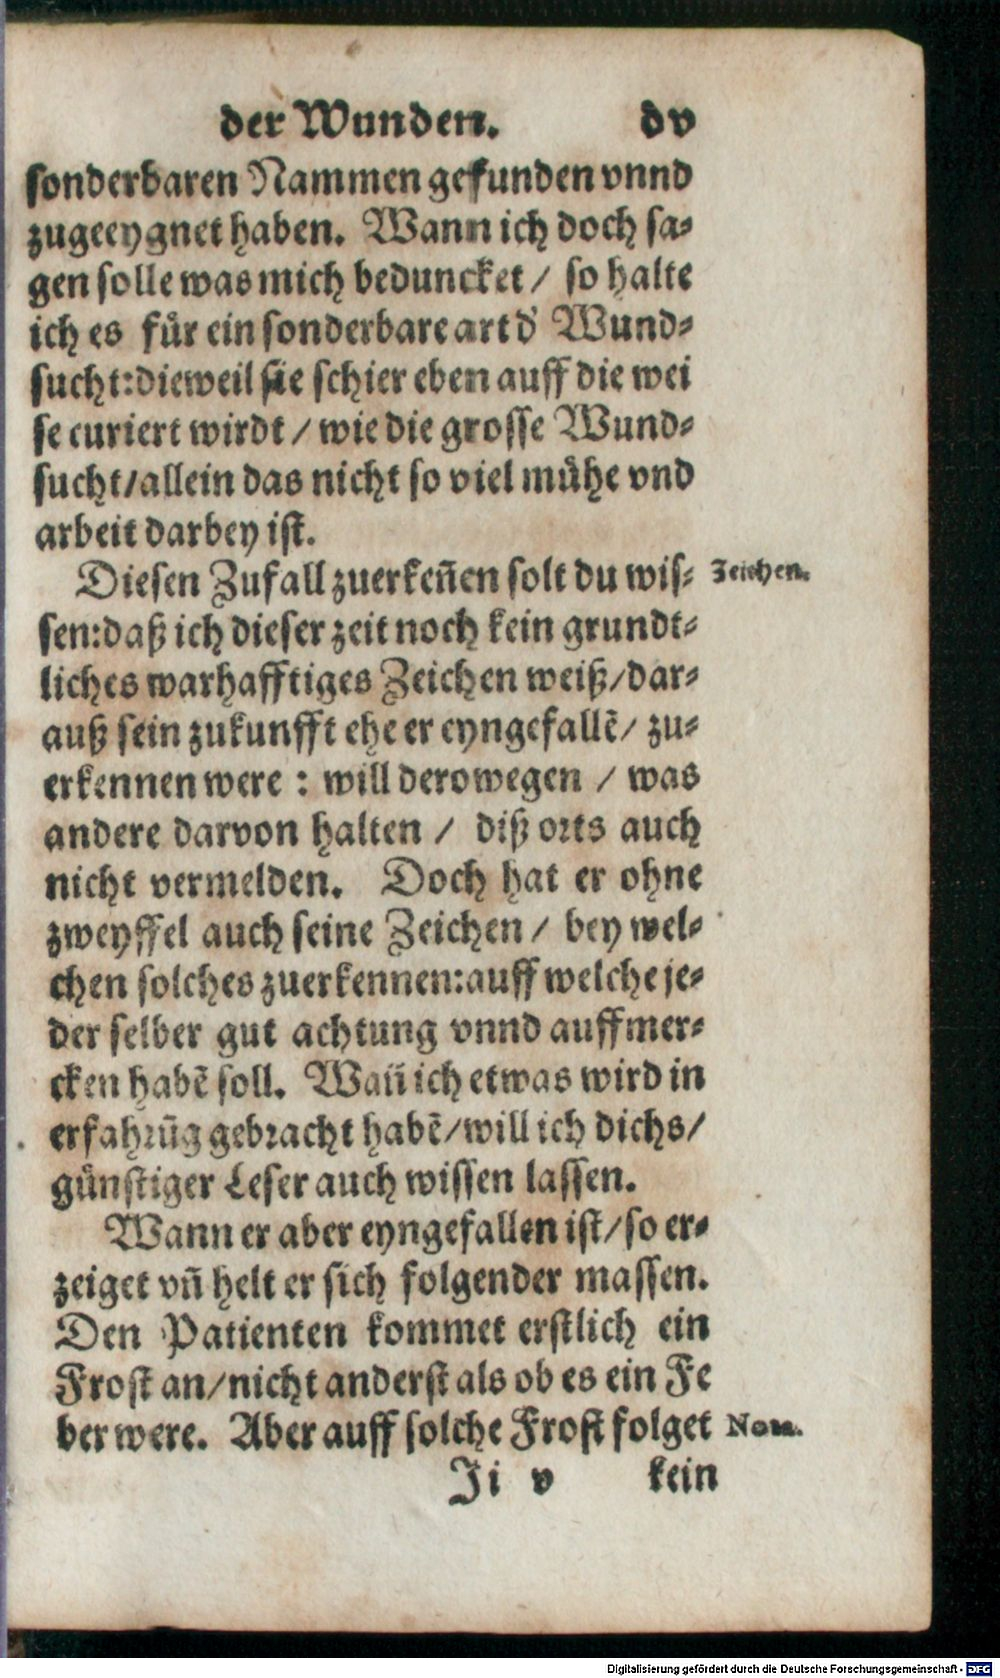 der Wunden. dv
sonderbaren Nammen gefunden vnnd
zugeeygnet haben. Wann ich doch sa⸗
gen solle was mich beduncket / so halte
ich es fuͤr ein sonderbare art d' Wund⸗
sucht:dieweil sie schier eben auff die wei
se curiert wirdt / wie die grosse Wund⸗
sucht/allein das nicht so viel muͤhe vnd
arbeit darbey ist.
Diesen Zufall zuerkeñen solt du wis⸗ Zeichen.
sen:daß ich dieser zeit noch kein grundt⸗
liches warhafftiges Zeichen weiß/dar⸗
auß sein zukunfft ehe er eyngefallẽ/ zu⸗
erkennen were : will derowegen / was
andere darvon halten / diß orts auch
nicht vermelden. Doch hat er ohne
zweyffel auch seine Zeichen / bey wel⸗
chen solches zuerkennen:auff welche je⸗
der selber gut achtung vnnd auffmer⸗
cken habẽ soll. Wañ ich etwas wird in
erfahrũg gebracht habẽ/will ich dichs/
guͤnstiger Leser auch wissen lassen.
Wann er aber eyngefallen ist/so er⸗
zeiget vñ helt er sich folgender massen.
Den Patienten kommet erstlich ein
Frost an/nicht anderst als ob es ein Fe
ber were. Aber auff solche Frost folget Nota.
Ji v kein
Digitalisierung gefördert durch die Deutsche Forschungsgemeinschaft - DFG